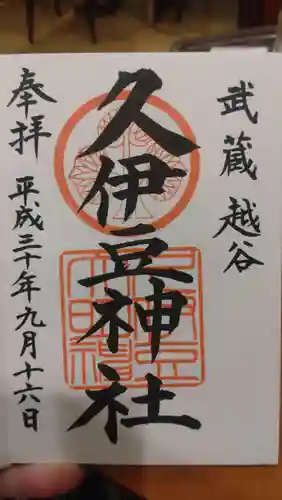 武蔵越谷
久伊豆神社
奉拝
平成三十年九月十六日